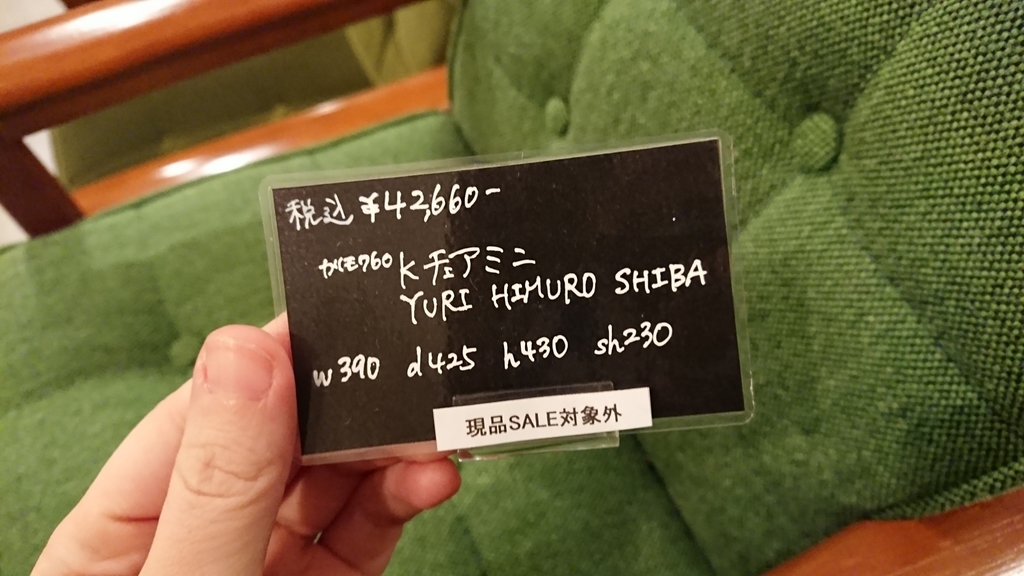 税込 ¥42,660-
カリモク60 Kチェアミニ
YURI HIMURO SHIBA
w390 d425 h430 sh230
現品SALE対象外